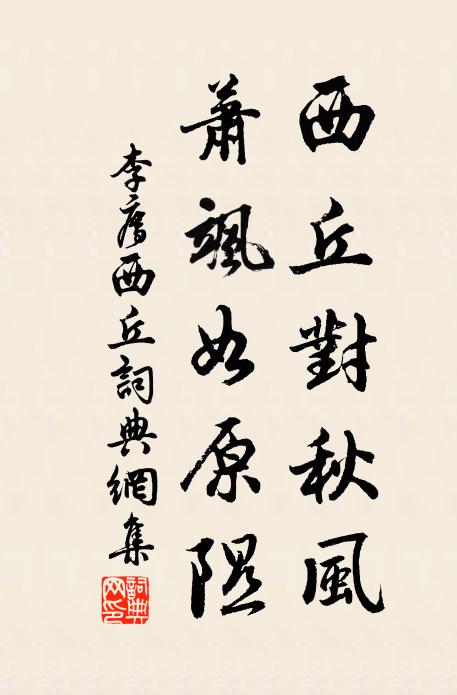 西丘對秋風
蕭颯如原隰
李廌西丘詞典網集
詞典
网印